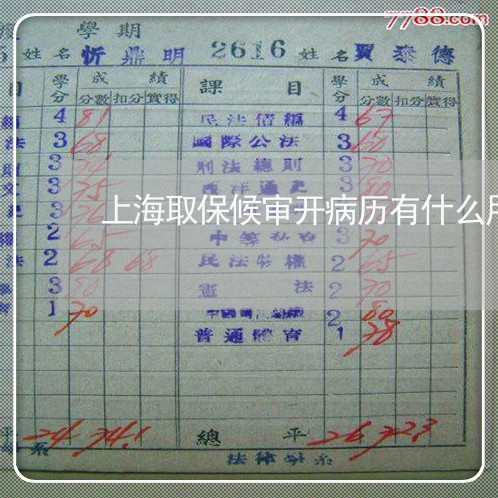 7788.com
學期
姓名忻鼎明 2616 姓名賈泰德
目 學分 成績 課目 學分 成績
分數 扣分 實得 分數 扣分 實得
4 81 民法債編 4 67
法 3 68 國際公法 3 60
3 刑法總則 3 70
3 75 西洋通史 3 80
上海取保候审开病历有什么用
2 65 3 70
法 2 68 68 民法物權 2 65
3 80 憲法 2 70
1 70 2 80
普通體育 1 78
平 24 74.1 總平 26 72.3
系 法律學系